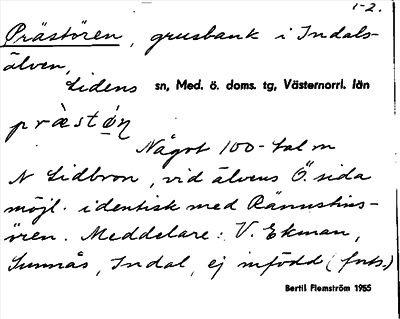 1-2.
Prästören, grusbank i Indals-
älven,
Lidens sn, Med. ö. doms. tg, Västernorrl. län
præstọ́ŋ
Något 100-tal m
N Lidbron, vid älvens Ö. sida
möjl. identisk med Rännstins-
ören. Meddelare: V. Ekman,
Sunnås, Indal, ej infödd (forts.)
Bertil Flemström 1955